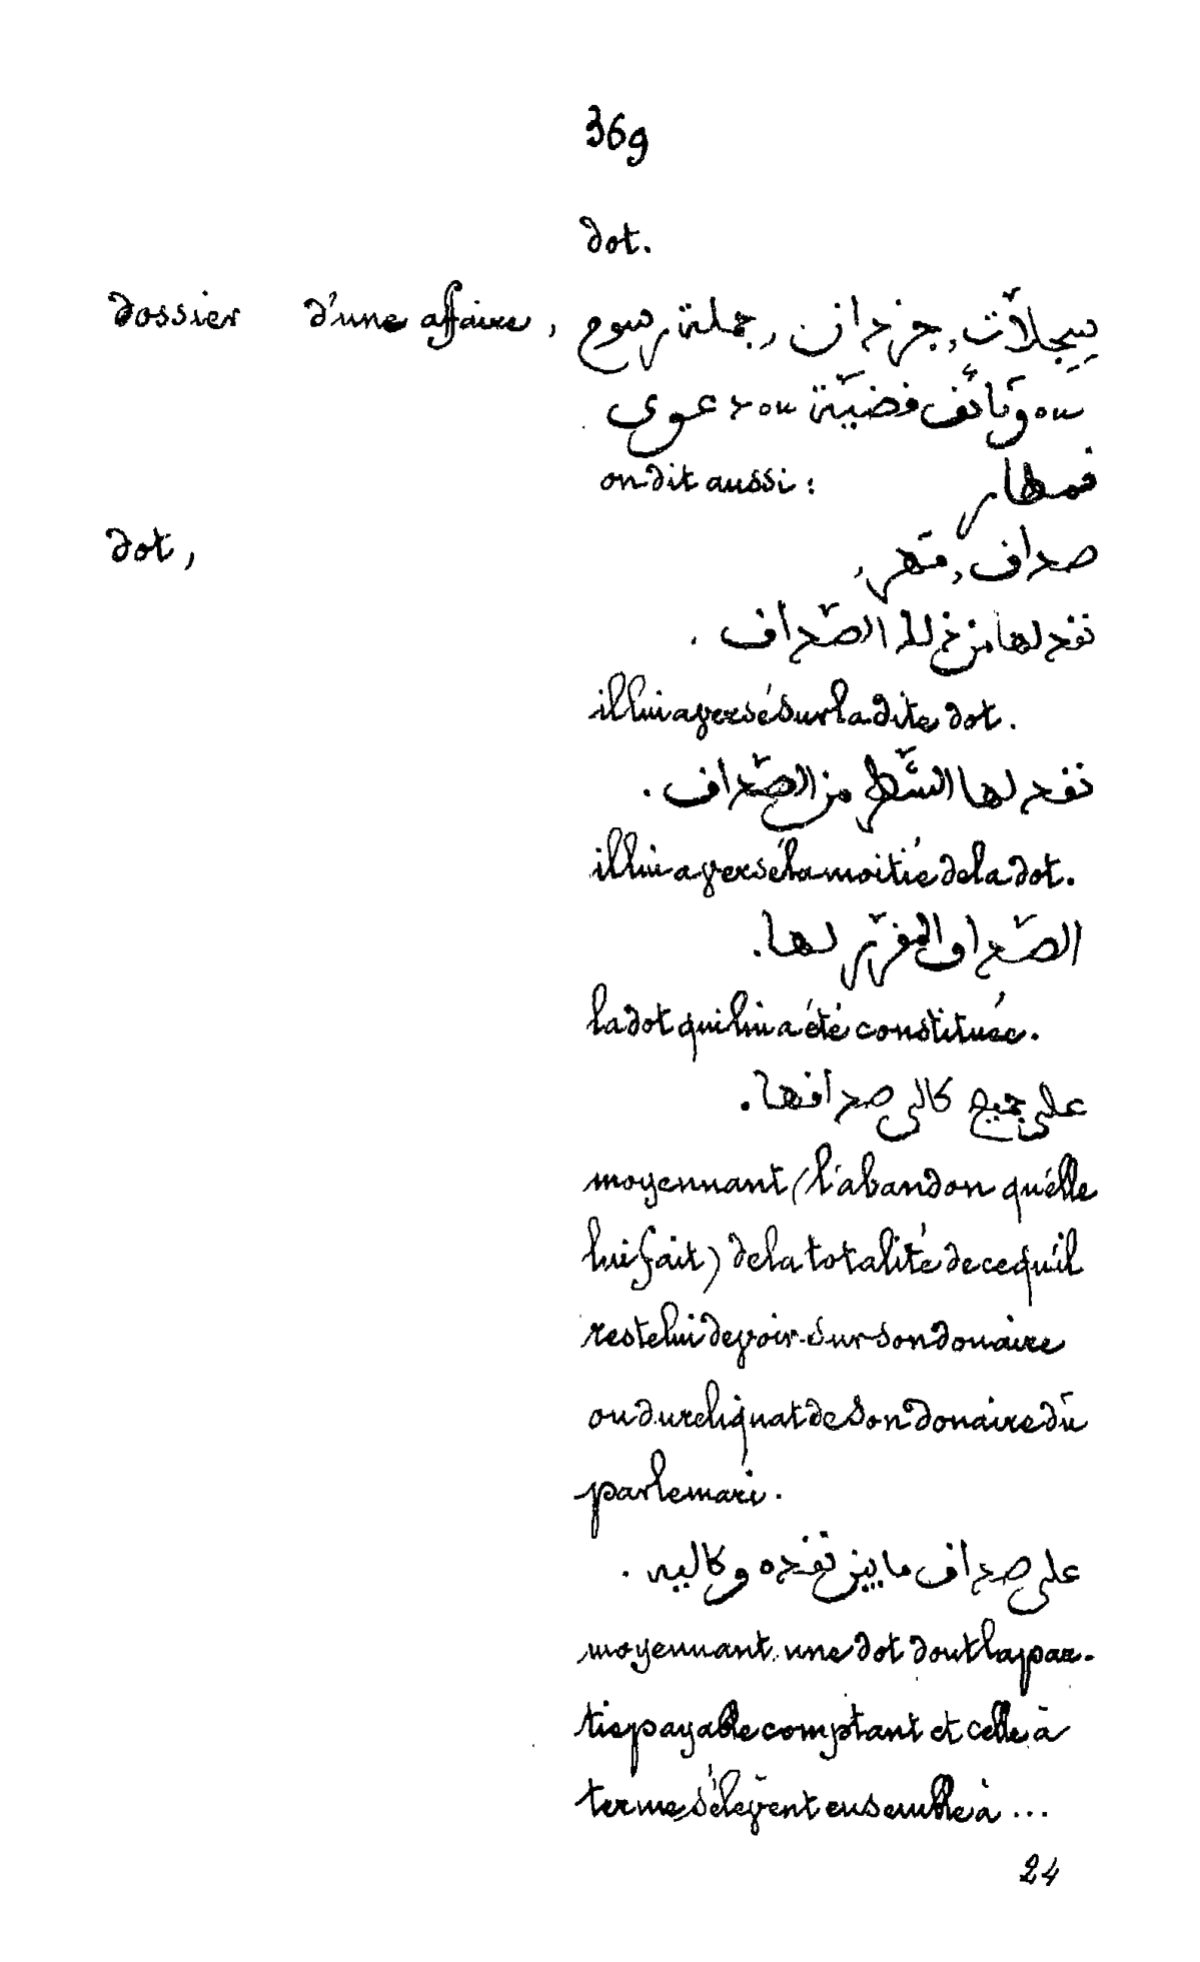 369
dot.
dossier d'une affaire, سِجِلاَّت, جزدان, جملة رسوم
ou وثائف فضيّة ou دعوى
on dit aussi : فمطار
dot, صداف, مَهر,
نفد لها من ذلك الصّداف.
il lui a versé sur la dite dot.
نفد لها الشّطر من الصّداف.
il lui a versé la moitié de la dot.
الصّداف المفرّر لها.
la dot qui lui a été constituée.
على جميع كالى صدافها.
moyennant (l'abandon qu'elle
lui fait) de la totalité de ce qu'il
reste lui devoir sur son douaire
ou du reliquat de son douaire dû
par le mari.
على صداف ما بين نفده وكاليه.
moyennant une dot dont la par-
tie payable comptant et celle à
terme, s'élèvent ensemble à ...
24